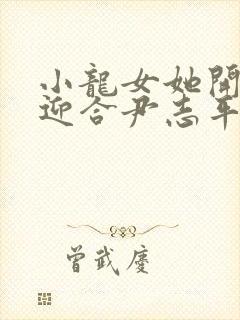 小龍女她開
迎合尹志平
曾武慶